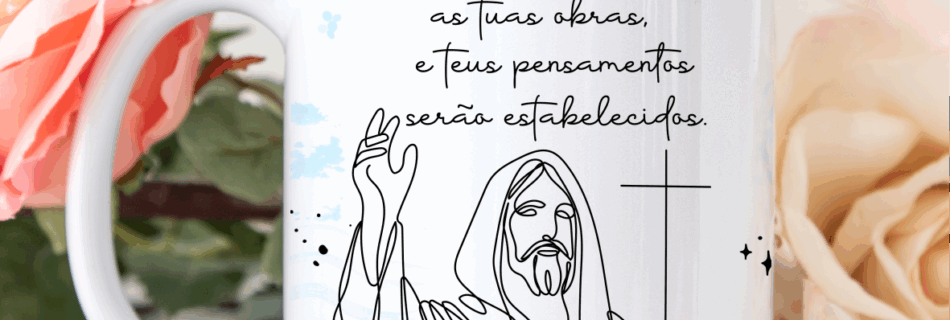 as tuas obras,
e teus pensamentos
serão estabelecidos.